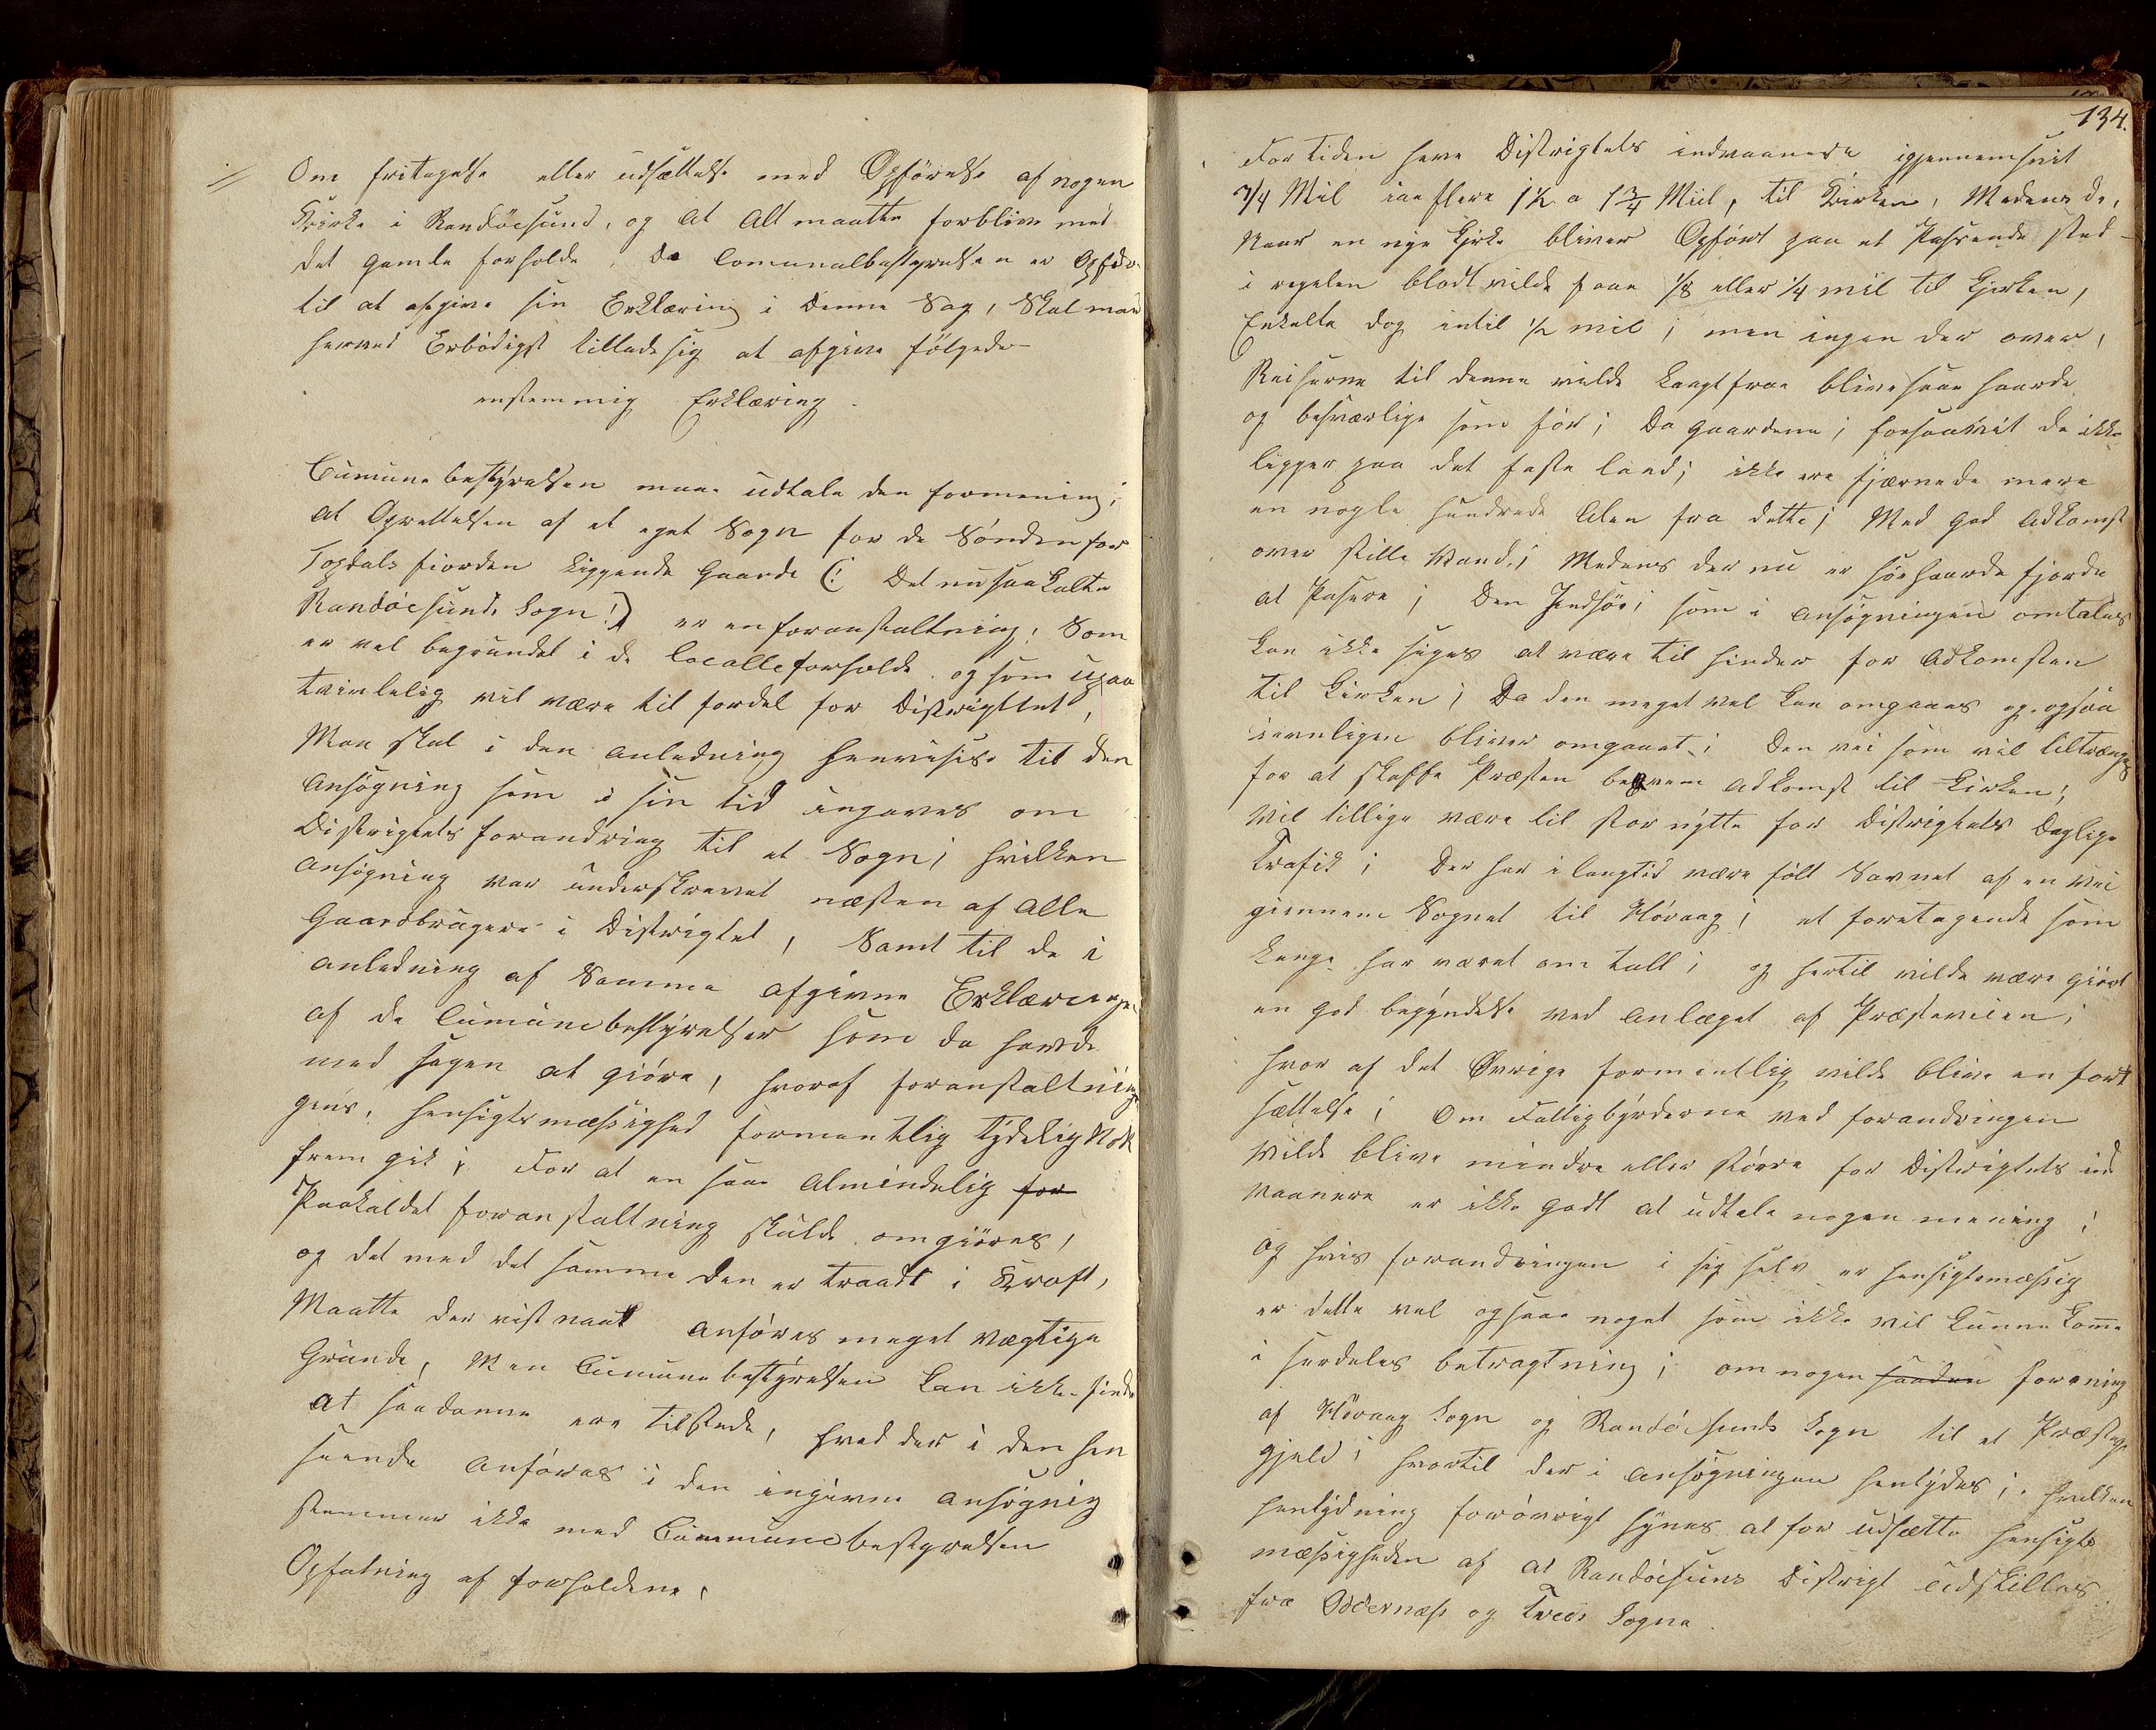 Om fritagelse eller udsættelse med Opförelse af nogen
Kirke i Randöesund, og at Alt maatte forblive med
det gamle forholde, Da Comunalbestyrelsen er Opfor
til at afgive sin Erklæring i denne Sag, Skal man
herved Erbödigst tillade sig at afgive fölgede
enstemmig Erklæring.
Cumunebestyrelsen maa udtale den formening;
at Oprettelsen af et eget Sogn for de Sönden for
Topdalsfiorden liggende Gaarde (: Det nu saa kalte
Randöesunds Sogn :) er en foranstaltning; Som
er vel begrundet i de localleforholde og som upaa
tvivlelig vil være til fordel for Distrigttet,
Man skal i den anledning henvises til den
Ansögning som i sin tid ingaves om
Distrigtets forandring til et Sogn; hvilken
ansögning var underskrevet næsten af Alle
Gaardbrugere i Distrigtet, Samt til de i
anledning af Samme afgivne Erklæringe
af de Cumunebestyrelser som da havde
med sagen at giöre, hvoraf foranstaltnin
gens, hensigtsmæssighed formentlig tydelig Nok
frem gik; For at en saa Almindelig for
Paakaldet foranstaltning skulde omgiöres,
og det med det samme den er traadt i Kraft,
Maatte der vist nank anföres meget vægtige
Grunde, Men Cumunebestyrelsen kan ikke finde
at saadanne ere tilstede, hvad der i den hen
seende anföres i den ingivne ansögnig
stemmer ikke med Cummunebestyrelsen
Opfatning af forholdene,
134.
For tiden have Distrigtets indvaanere igjennemsnit
3/4 Mil iaa flere 1½ a 1¾ Miil, til Kirken, Medens de,
Naar en nye Kjrke bliver Opfört paa et Passende sted
i regelen blodt vilde faae 1/8 eller 1/4 mil til Kjrken,
Enkelte dog intil ½ mil; men ingen der over,
Reiserne til denne vilde langt fra blive saa haarde
og besværlige som för; Da gaardene; forsaavit de ikke
ligger paa det faste land; ikke ere fjærnede mere
en nogle hundrede Alen fra dette; Med god Adkomst
over stille Vand; Medens der nu er söehaarde fjorde
at Pasere; Den Indsöe; som i ansögningen omtales
kan ikke siges at være til hinder for Adkomsten
til Kirken; Da den meget vel kan omgaaes og ogsaa
iævnligen bliver omgaaet; den vei som vil tiltrænges
for at skaffe Præsten beqvem Adkomst til Kirken;
Vil tillige være til stor nytte for Distrigtets daglige
Trafik; Der har i langtid være fölt Savnet af en Vei
giennem Sognet til Hövaag; et foretagende som
længe har været om talt; og hertil vilde være giört
en god begyndelse ved anlæget af Præsteveien;
hvor af det Övrige formentlig vilde blive en fort
sættelse; Om Fattigbyrderne ved forandringen
Vilde blive mindre eller större for Distrigtets ind
vaanere er ikke godt at udtale nogen mening;
og hvis forandringen i sig selv er hensigtsmæssig
er dette vel ogsaa noget som ikke vil kunne kome
i serdeles betragtning; om nogen saadan forening
af Hövaag Sogn og Randöesunds Sogn til et Præste
gjeld; hvortil der i ansögningen hentydes; hvilken
hentydning foröuvrigt synes at for udsætte hensigts
mæssigheden af at Randöesuns Distrigt udskilles
fra Oddernæs og Tveds Sogne.